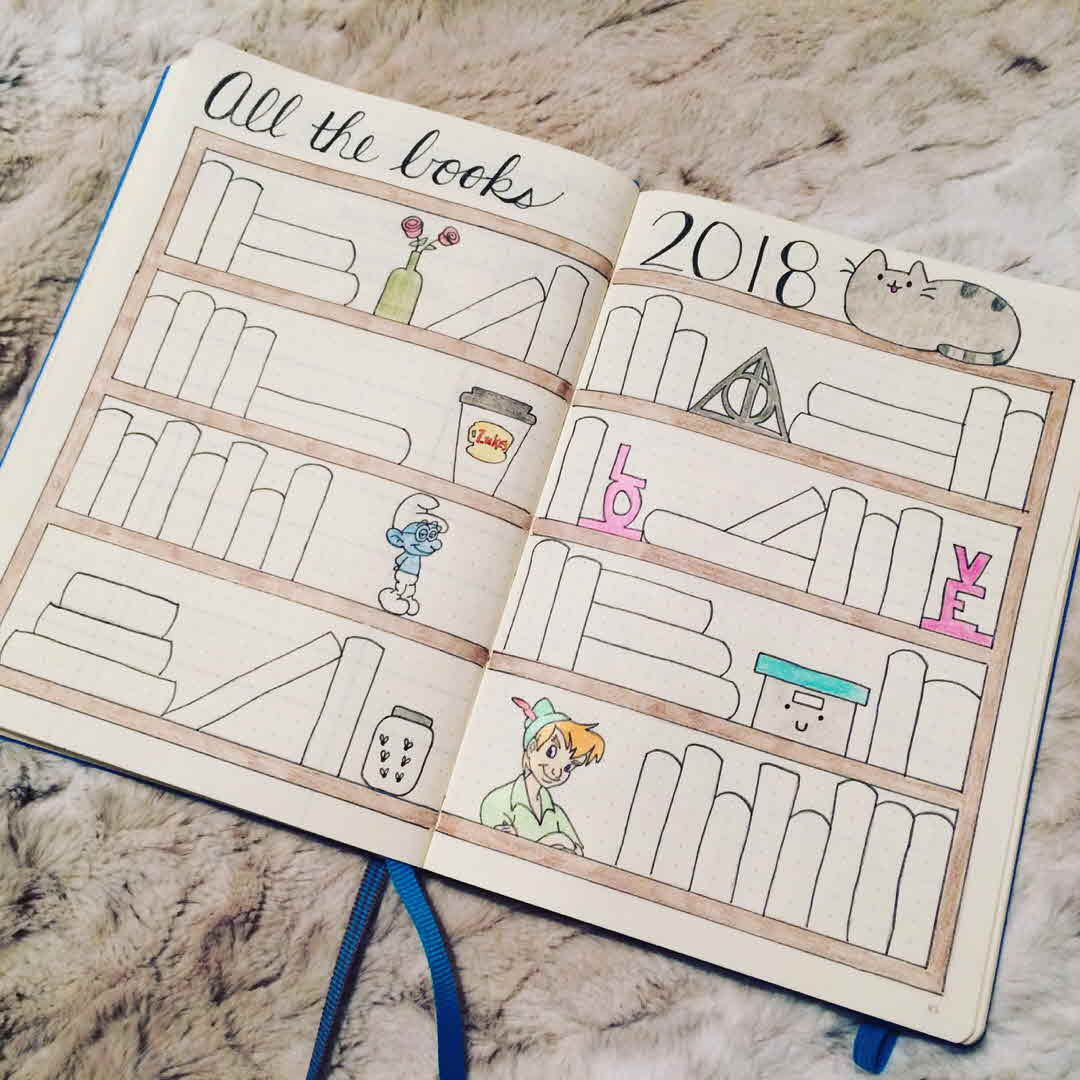 All the books
2018
Luke's
LO
VE